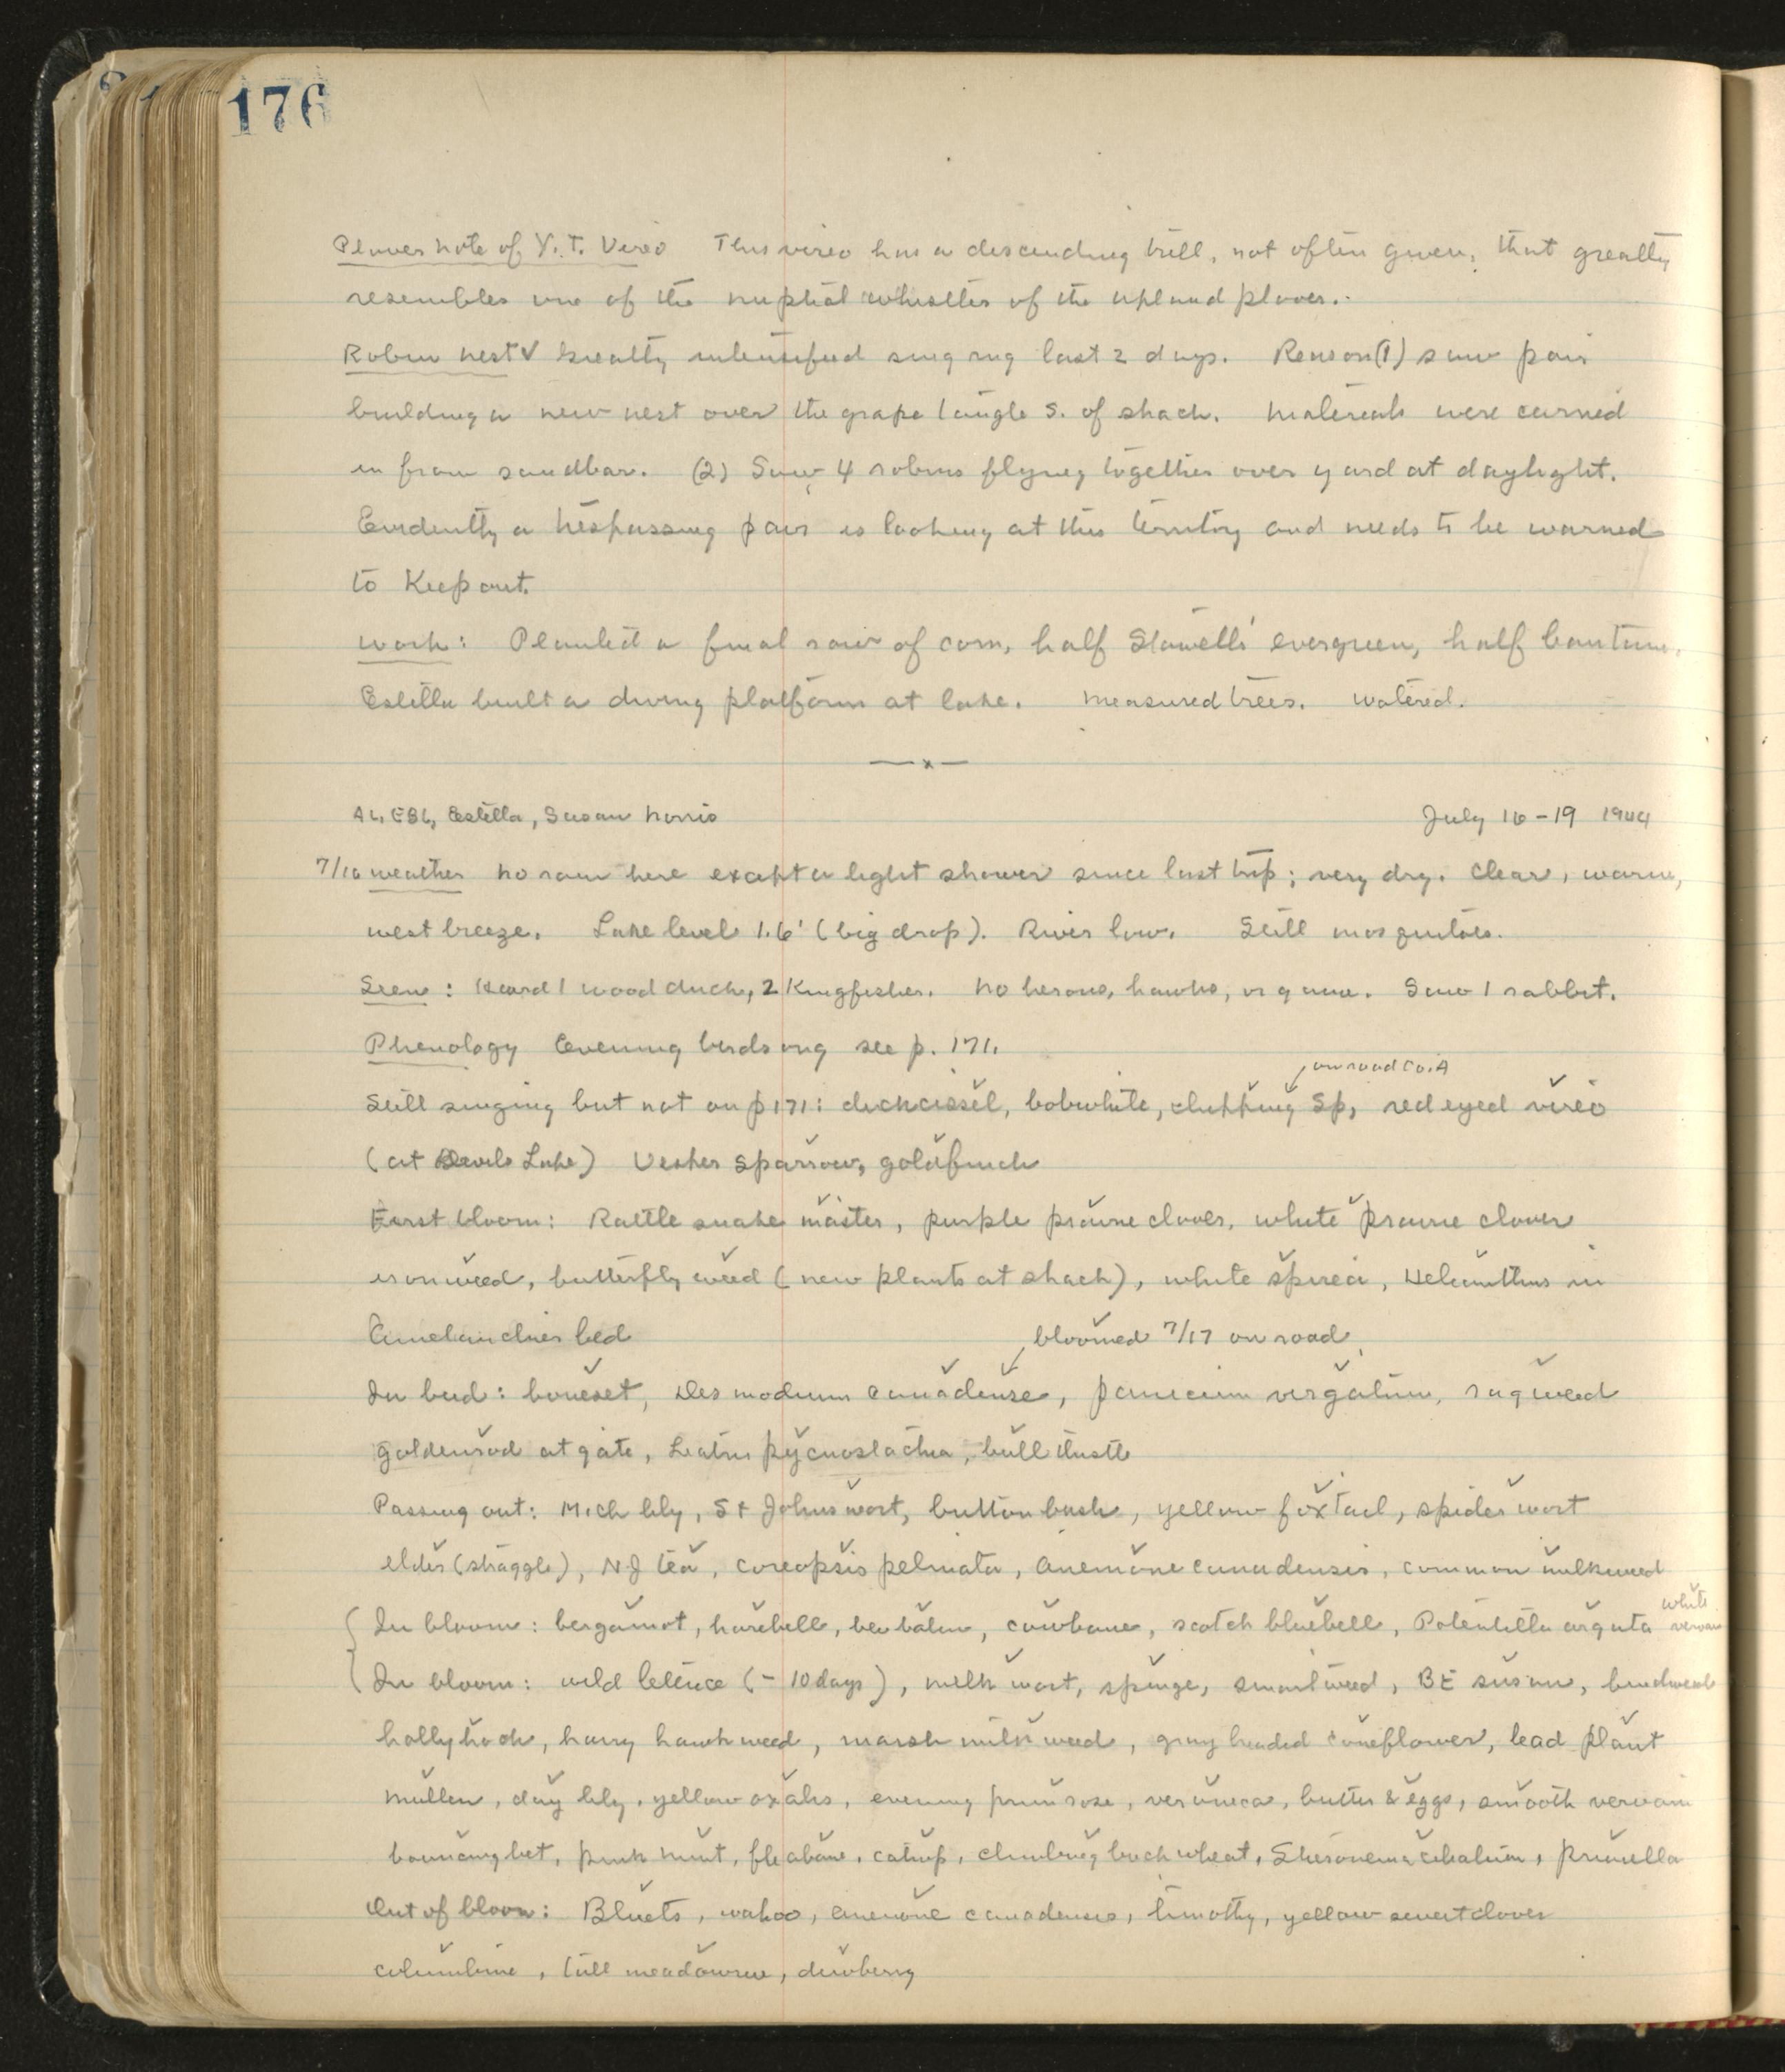 176
Plover note of Y.T. Vireo This vireo has a descending trill, not often given, that greatly
resembles one of the nuptial whistles of the upland plover.
Robin nest √ Greatly intensified singing last 2 days. Reason (1) saw pair
building a new nest over the grape tangle S. of shack. Materials were carried
in from sandbar. (2) Saw 4 robins flying together over yard at daylight.
Evidently a trespassing pair is looking at this territory and needs to be warned
to Keep out.
Work: Planted a final row of corn, half Stowell's evergreen, half bantum.
Estella built a diving platform at lake. Measured trees. Watered.
—x—
AL, EBL, Estella, Susan Norris July 16-19 1944
7/16 weather No rain here except a light shower since last trip; very dry. Clear, warm,
west breeze. Lake level 1.6' (big drop). River low. Still mosquitoes.
Seen: Heard 1 wood duck, 2 Kingfisher. No herons, hawks, or game. Saw 1 rabbit.
Phenology Evening birdsong see p. 171.
on road Co. A
Still singing but not on p 171: dickcissel, bobwhite, chipping Sp, red eyed vireo
(at Devils Lake) Vesper Sparrow, goldfinch
First bloom: Rattle snake master, purple prairie clover, white prairie clover
ironweed, butterfly weed (new plants at shack), white spirea, Helianthus in
Amelanchier bed
bloomed 7/17 on road
In bud: boneset, Desmodium canadense, panicum virgatum, ragweed
goldenrod at gate, Liatris pycnostachia, bull thistle
Passing out: Mich lily, St Johnswort, button bush, yellow foxtail, spider wort
elder (straggle), NJ tea, coreopsis palmata, anemone canadensis, common milkweed
In bloom: bergamot, harebell, bee balm, cowbane, scotch bluebell, Potentilla arguta white vervain
In bloom: wild lettuce (- 10 days), milk wort, spurge, smartweed, BE susan, bindweed
hollyhock, hairy hawkweed, marsh milkweed, gray headed coneflower, lead plant
mullen, day lily, yellow oxalis, evening primrose, veronica, butter & eggs, smooth vervain
bouncing bet, pink mint, fleabane, catnip, climbing buckwheat, Steironema ciliatum, prunella
Out of bloom: Bluets, wahoo, anemone canadensis, timothy, yellow sweet clover
columbine, tall meadowrue, dewberry